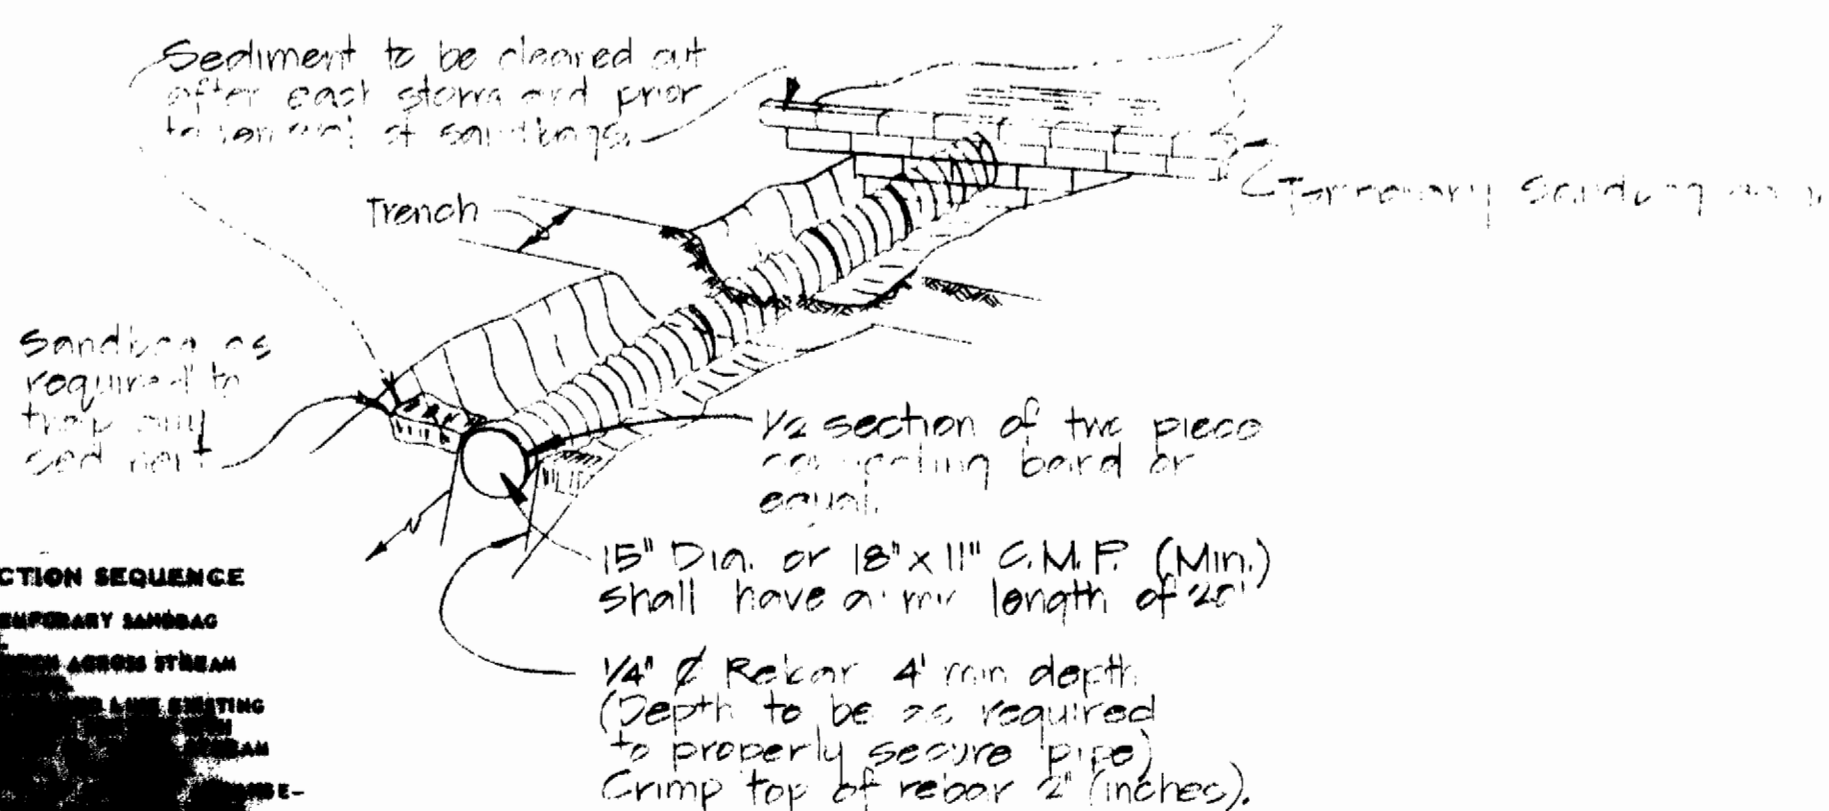 Sediment to be cleared out
after each storm and prior
to removal of sandbags.
Trench
Temporary Sandbag
Sandbag as
required to
trap any
sediment
1/2 section of two piece
connecting band or
equal.
15" Dia. or 18" x 11" C.M.P. (Min.)
shall have a min length of 20'
1/4" Ø Rebar 4' min depth
(Depth to be as required
to properly secure pipe)
Crimp top of rebar 2" (inches).
CTION SEQUENCE
EMPORARY SANDBAG
ACROSS STREAM
EXISTING